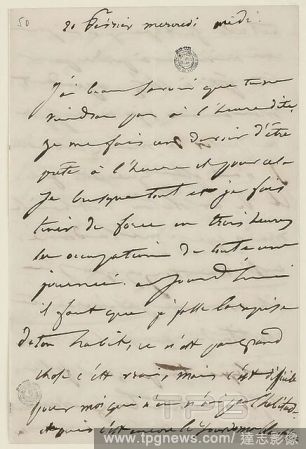 50
20 Février mercredi midi.
J'ai beau savoir que tu ne
viendras pas à l'heure dite,
je me fais un devoir d'être
prête à l'heure et pour cela
je brusque tout et je fais
tenir de force en trois heures
les occupations de toute une
journée. Aujourd'hui
il faut que je fasse la reprise
de ton habit, ce n'est pas grand
chose c'est vrai, mais c'est difficile
pour moi qui n'ai
et puis c'est encore le
TPG
www.tpgnews.com/達志影像